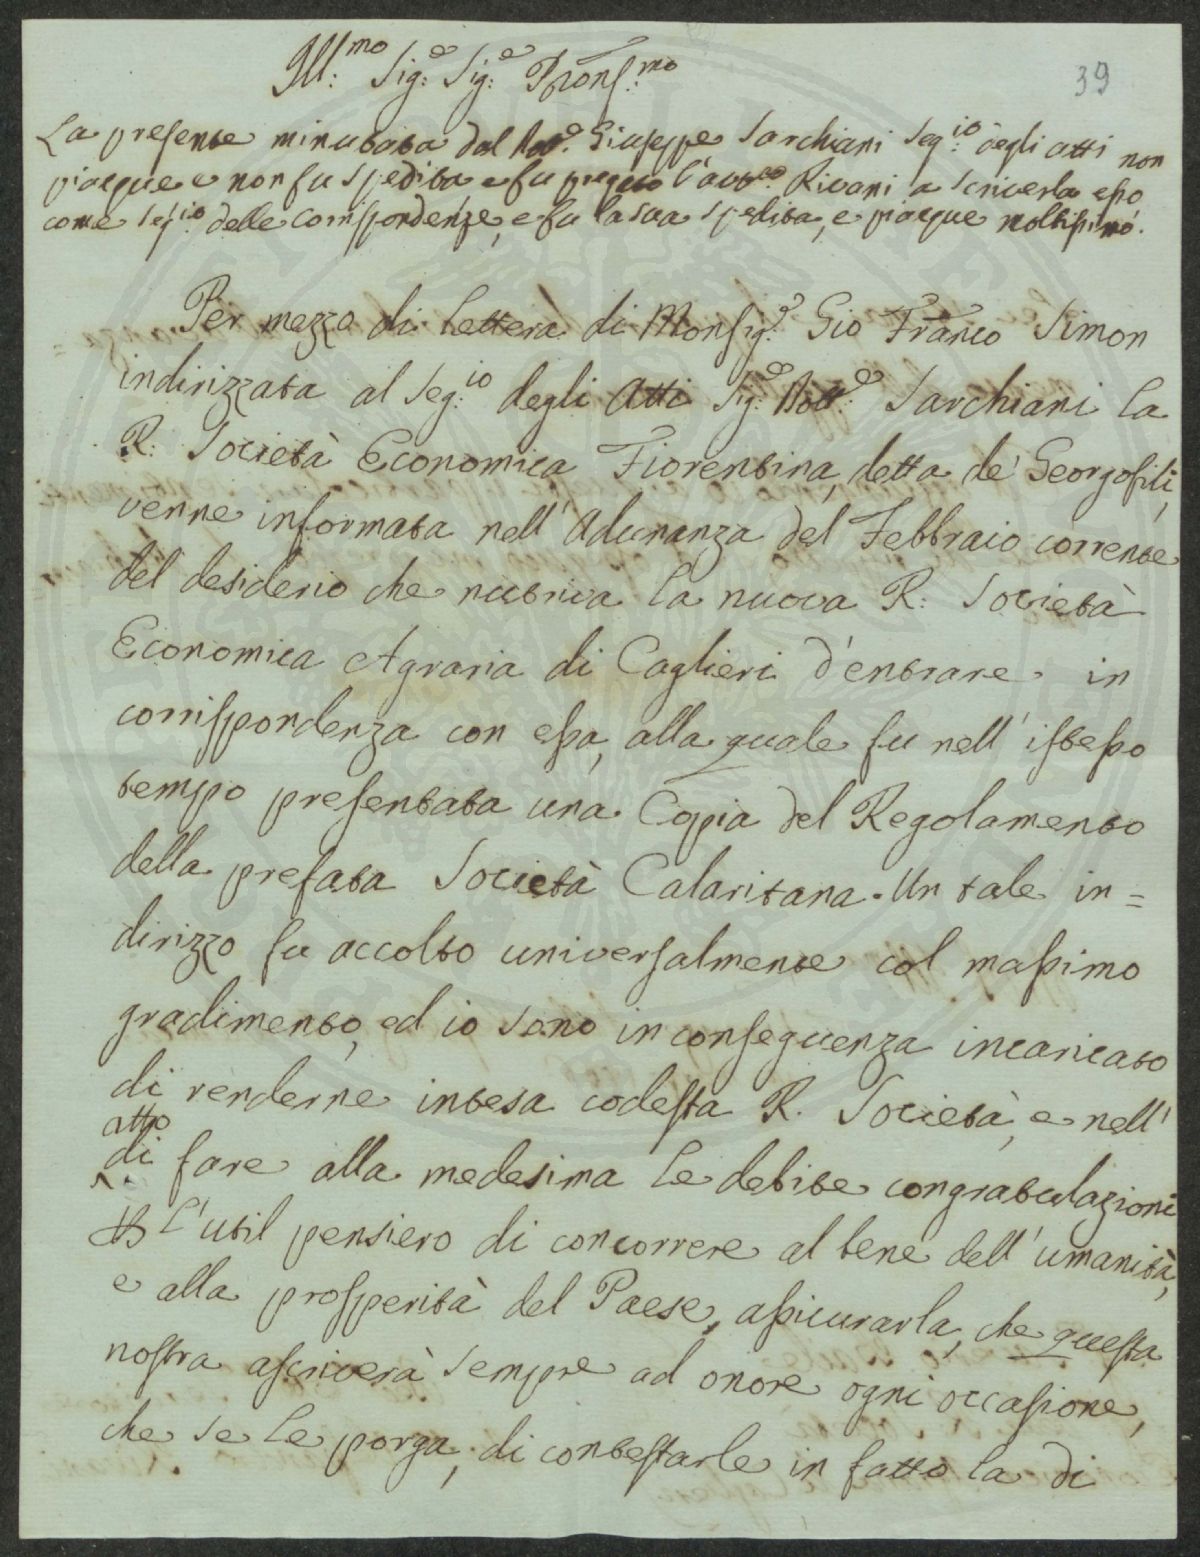 39
Ill:mo Sig:e Sig:e Pron̄s:mo
La presente minutata dal Dott:e Giuseppe Sarchiani Seg:io degli atti non
piacque e non fu spedita e fu pregato l'avv:co Rivani a scriverla esso
come Seg:io delle corrispondenze, e fu la sua spedita, e piacque moltissimo.
Per mezzo di Lettera di Monsig:e Gio Franco Simon
indirizzata al Seg:io degli Atti Sig:e Dott:e Sarchiani la
R: Società Economica Fiorentina, detta de' Georgofili,
venne informata nell'Adunanza del Febbraio corrente
del desiderio che nutriva la nuova R: Società
Economica Agraria di Caglieri d'entrare in
corrispondenza con essa, alla quale fu nell'istesso
tempo presentata una Copia del Regolamento
della prefata Società Calaritana. Un tale in=
dirizzo fu accolto universalmente col massimo
gradimento, ed io sono in conseguenza incaricato
di renderne intesa codesta R. Società, e nell'
atto
di fare alla medesima le debite congratulazioni
L'util pensiero di concorrere al bene dell'umanità,
e alla prosperità del Paese, assicurarla, che questa
nostra ascriverà sempre ad onore ogni occasione,
che se le porga, di contestarle in fatto la di